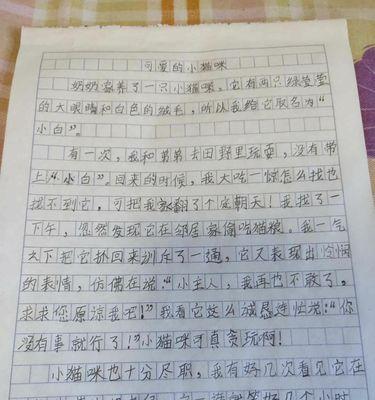 可爱的小猫咪
奶奶家养了一只小猫咪，它有两只绿莹莹
的大眼睛和白色的绒毛，所以我给它取名为“
小白”。
有一次，我和弟弟去田野里玩耍，没有带
上“小白”。回来的时候，我大吃一惊怎么找也
找不到它，可把我家翻了个底朝天！我找了一
下午，忽然发现它在邻居家偷吃猫粮。我一气
之下把它抓回来训斥了一通，它又表现出可怜
的表情，仿佛在说：“小主人，我再也不敢了，
求求您原谅我吧！”我看它这么诚恳连忙说：“你
没有事就行了！”小猫咪可真贪玩啊！
小猫咪也十分尽职，我有好几次看见它在
好几个小时